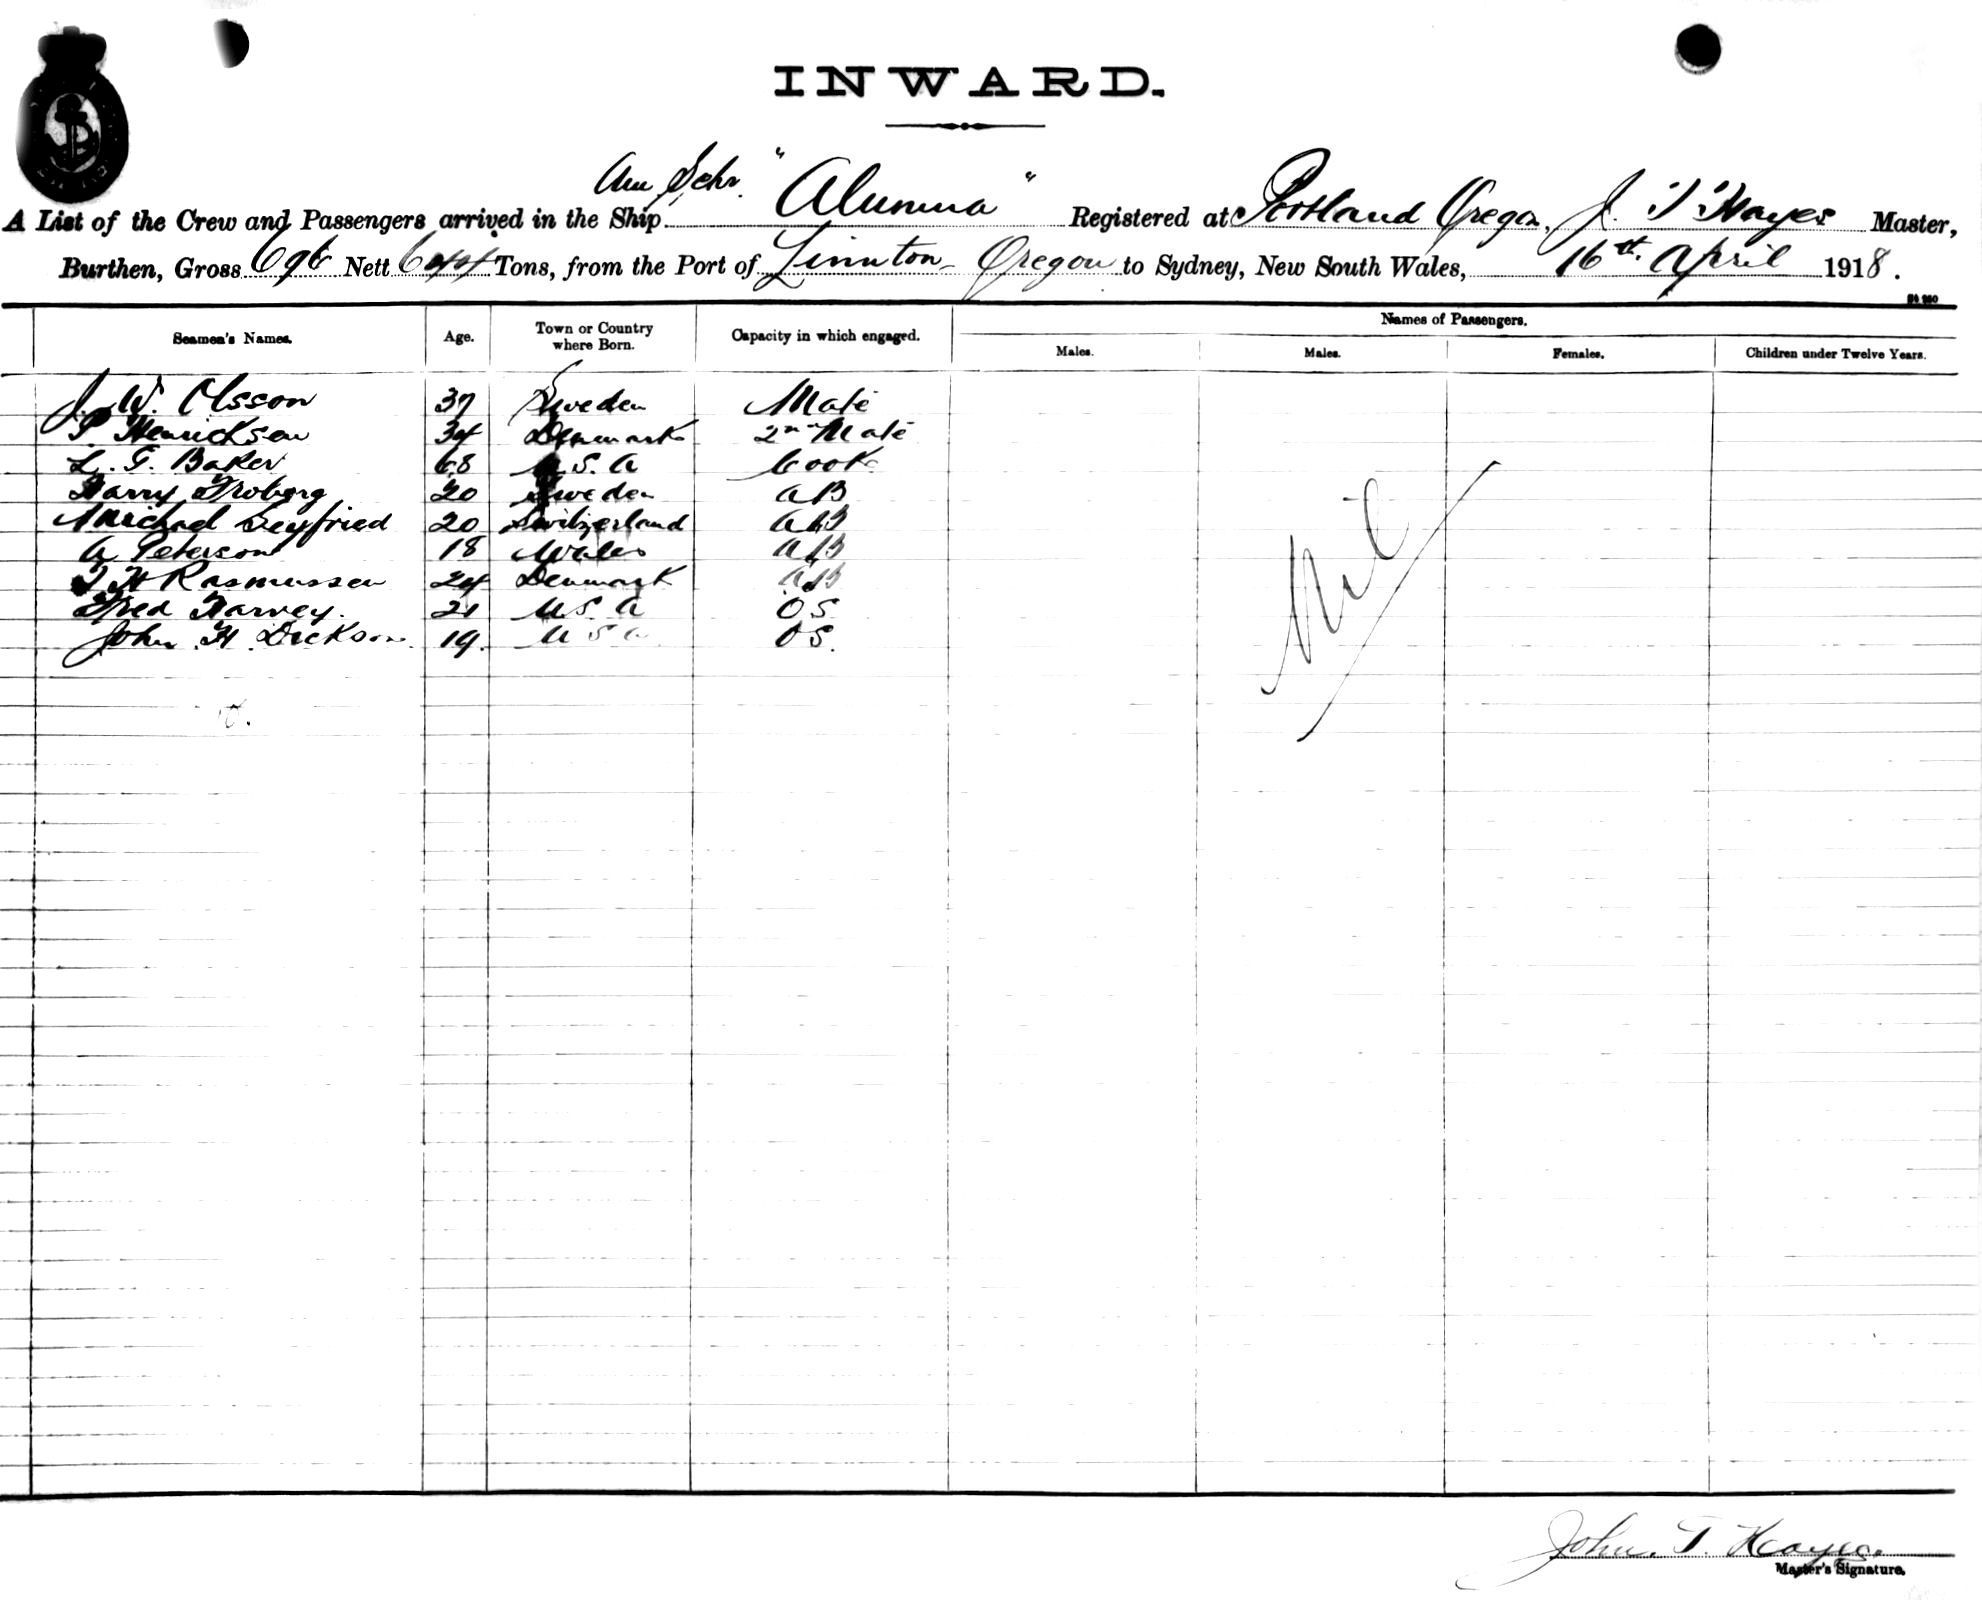 INWARD.
Am Schr. "Alumna"
A List of the Crew and Passengers arrived in the Ship Registered at Portland Oregon, J. T. Hayes Master,
Burthen, Gross 696 Nett Tons, from the Port of Linnton - Oregon to Sydney, New South Wales, 16th. April 1918.
Seamen's Names. Age. Town or Country where Born. Capacity in which engaged. Names of Passengers.
Males. Males. Females. Children under Twelve Years.
J. W. Olsson 37 Sweden Mate
P. Henricksen 34 Denmark 2nd Mate
L. G. Baker 68 U.S.A Cook
Harry Troberg 20 Sweden AB
Michael Seyfried 20 Switzerland AB
A Peterson 18 Wales AB
J H Rasmussen 24 Denmark AB
Fred Harvey. 21 U.S.A OS.
John. H. Dickson. 19. U S A OS.
Nil
John. T. Hayes.
Master's Signature.